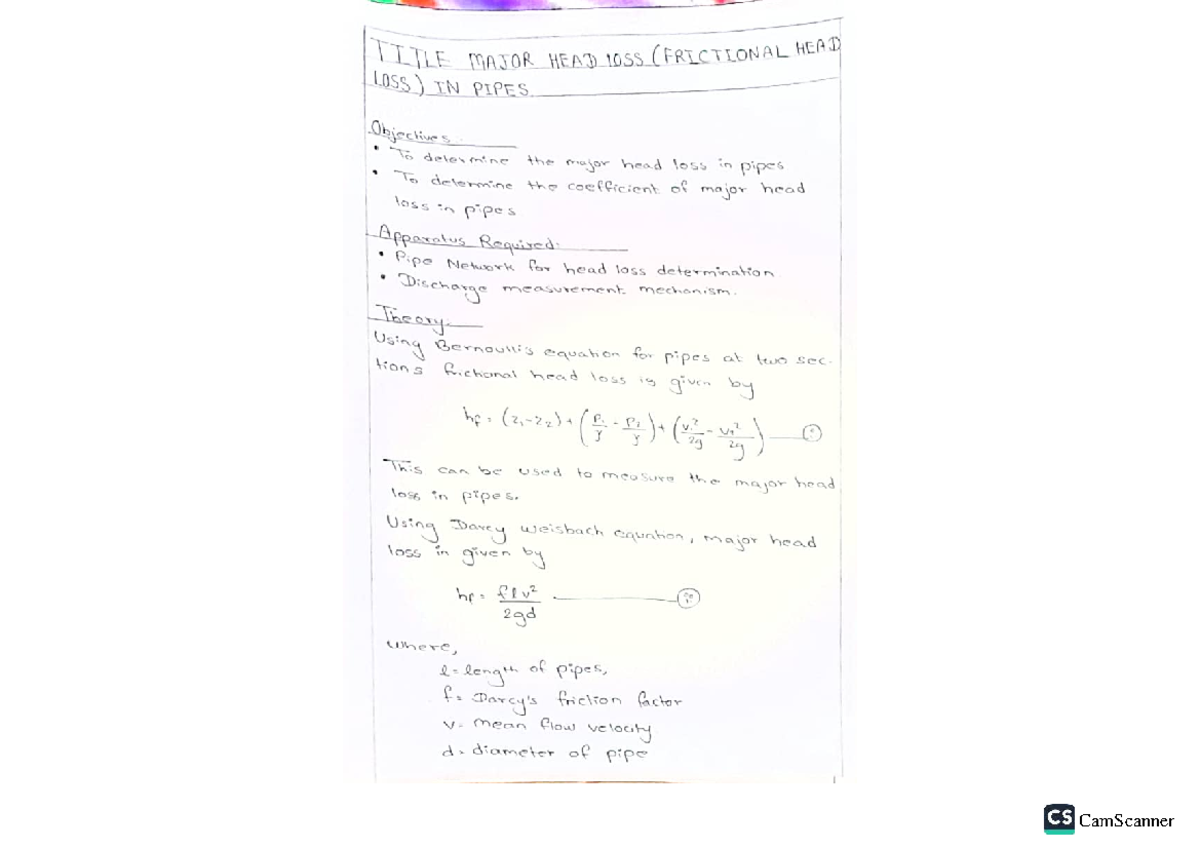 TITLE MAJOR HEAD LOSS (FRICTIONAL HEAD
LOSS) IN PIPES
Objectives.
• To determine the major head loss in pipes
• To determine the coefficient of major head
loss in pipes
Apparatus Required:
• Pipe Network for head loss determination
• Discharge measurement mechanism.
Theory:
Using Bernoulli's equation for pipes at two sec-
tions frictional head loss is given by
hf = (z₁-z₂) + (P₁/γ - P₂/γ) + (v₁²/2g - v₂²/2g) — (i)
This can be used to measure the major head
loss in pipes.
Using Darcy Weisbach equation, major head
loss in given by
hf = flv²/2gd — (ii)
where,
l = length of pipes,
f = Darcy's friction factor
v = mean flow velocity
d = diameter of pipe
1
CS CamScanner